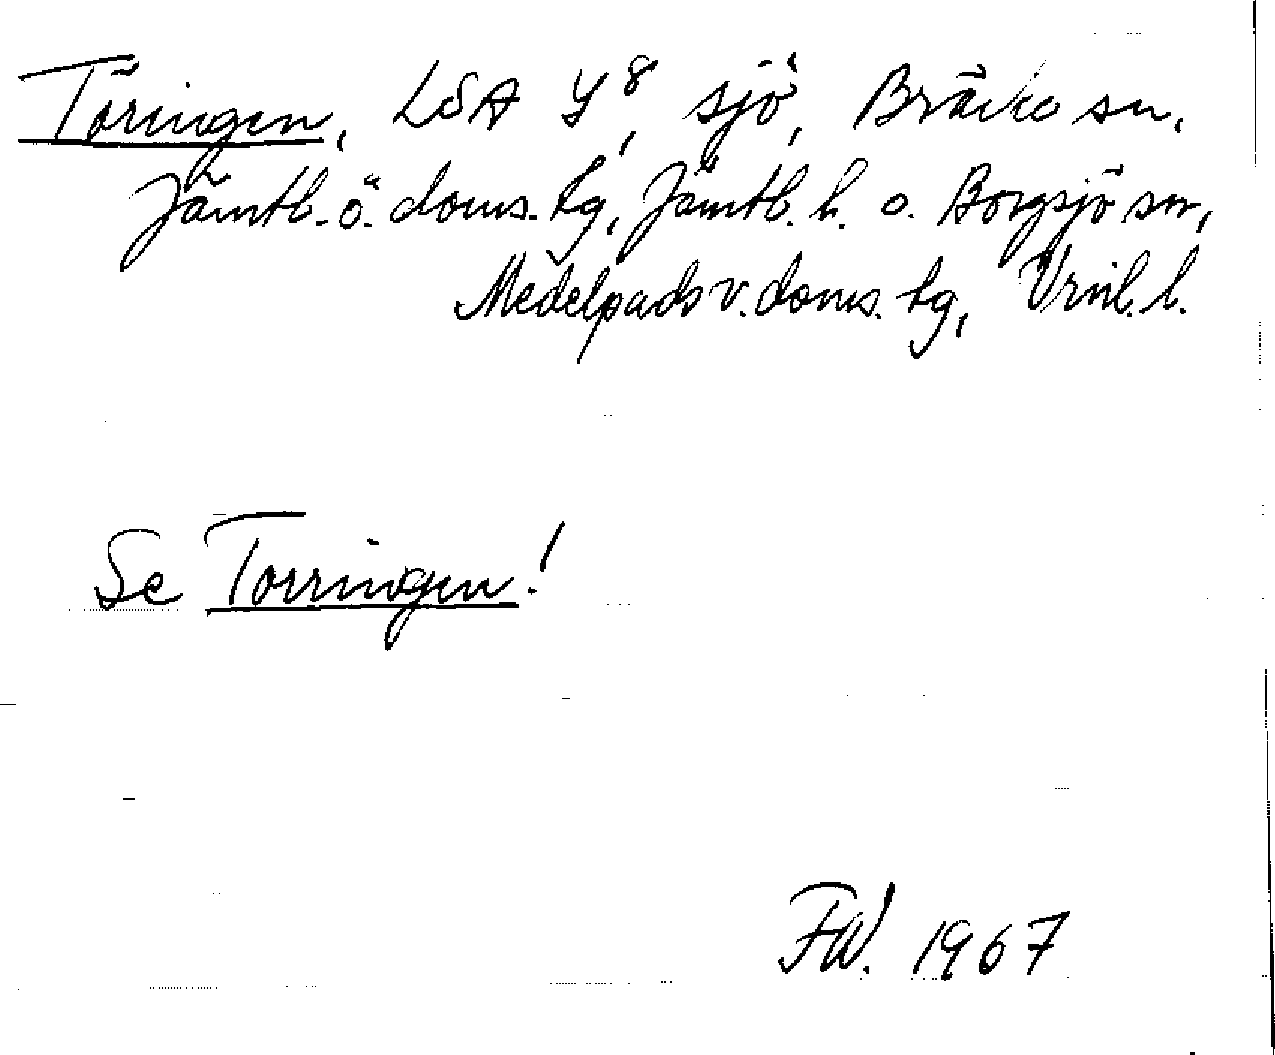 Töringen, LSA Y8, sjö, Bräcke sn,
Jämtl. ö. doms. tg, Jämtl. l. o. Borgsjö sn,
Medelpads v. doms. tg, Vrnl. l.
Se Torringen!
FW. 1967